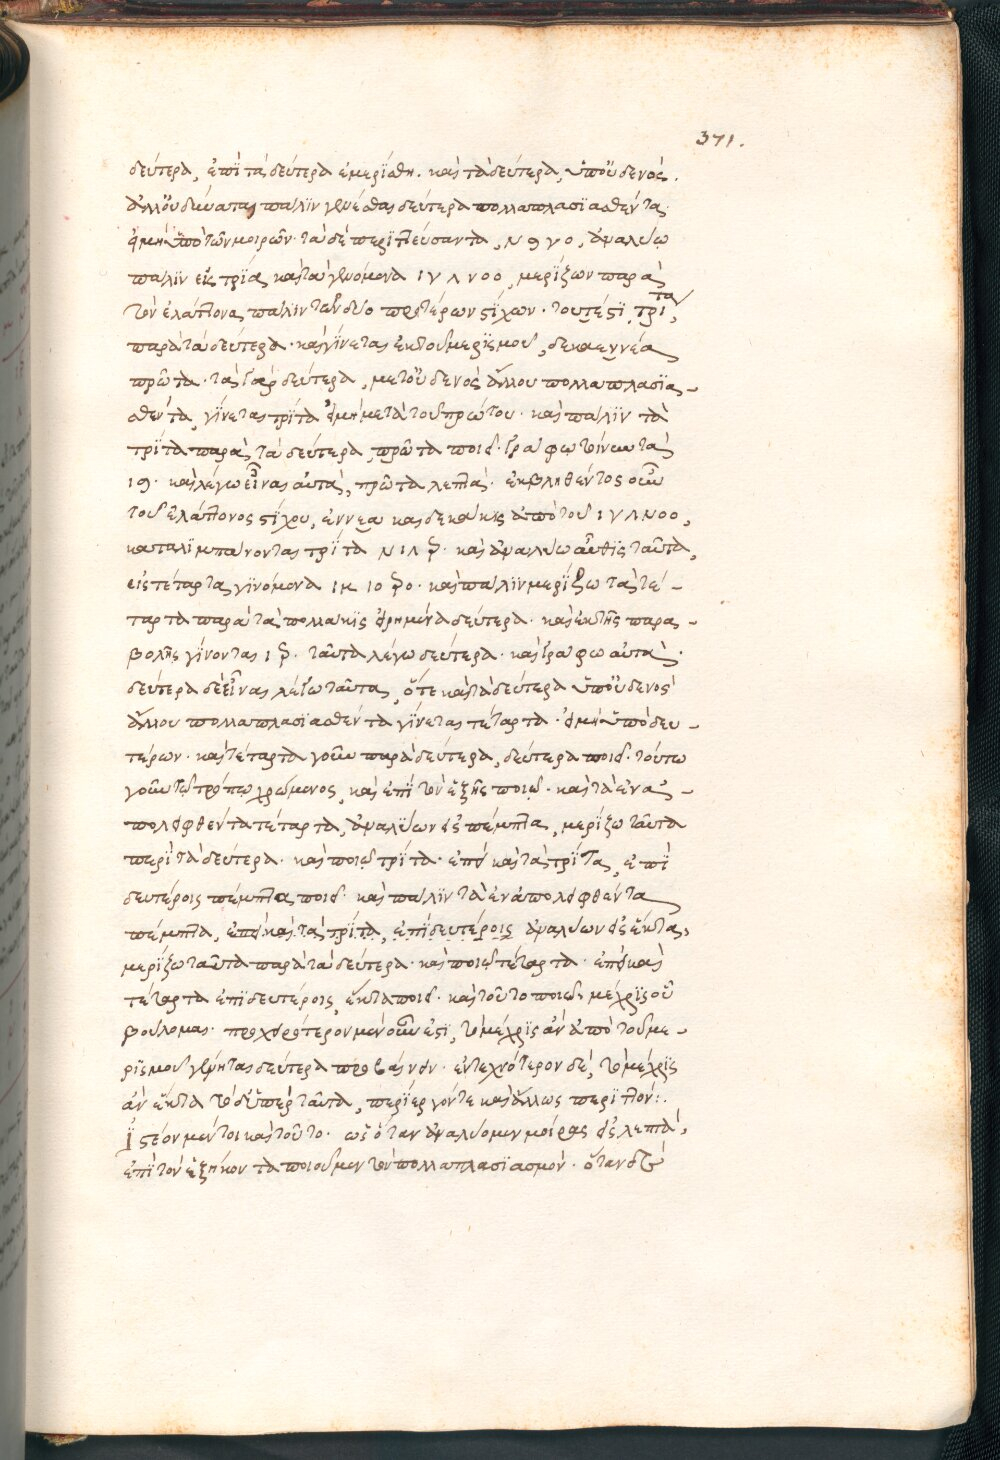 371.
δεύτερα, ἐπὶ τὰ δεύτερα ἐμερίσθη. καὶ τὰ δεύτερα, ὑπ' οὐδενὸς.
ἄλλου δύναται πάλϊν γενέσθαι δεύτερα πολλαπλασϊασθέντα
εἰ μὴ ὑπὸ τῶν μοιρῶν· τὰ δὲ περϊττεύσαντα,
πάλϊν εἰς τρίτα, καὶ τὰ γενόμενα μερίζων παρὰ
τὸν ἐλάττονα πάλϊν τῶν δύο προτέρων στίχων· τουτέστι τρίτα,
παρὰ τὰ δεύτερα· καὶ γίνεται ἐκ τοῦ μερϊσμοῦ, δεκαεννέα
πρῶτα· τὰ γὰρ δεύτερα, μετ' οὐδενὸς ἄλλου πολλαπλασϊα-
σθέντα, γίνεται τρίτα εἰ μὴ μετὰ τοῦ πρώτου· καὶ πάλϊν τὰ
τρίτα παρὰ τὰ δεύτερα, πρῶτα ποιεῖ· γράφω γίνεται τὰ
19· καὶ λέγω εἶναι αὐτὰ, πρῶτα λεπτὰ· ἐκβληθέντος οὖν
τοῦ ἐλάττονος στίχου, ἐννεα καὶ δεκάκις ἀπὸ τοῦ
καταλϊμπάνονται τρίτα καὶ ἀναλύω αὖθϊς ταῦτα,
εἰς τέταρτα γϊνόμενα καὶ πάλϊν μερίζω τὰ τέ-
ταρτα παρὰ τὰ πολλάκϊς εἰρημένα δεύτερα· καὶ ἐκ τῆς παρα-
βολῆς γίνονται ταῦτα λέγω δεύτερα· καὶ γράφω αὐτὰ·
δεύτερα δὲ εἶναι λέγω ταῦτα, ὅτε καὶ τὰ δεύτερα ὑπ' οὐδενὸς
ἄλλου πολλαπλασϊασθέντα γίνεται τέταρτα· εἰ μὴ ὑπὸ δευ-
τέρων· καὶ τέταρτα γοῦν παρὰ δεύτερα, δεύτερα ποιεῖ· τούτω
γοῦν τῷ τρόπῳ χρώμενος, καὶ ἐπὶ τὸν ἑξῆς ποιῶ· καὶ τὰ ἐνα-
πολειφθέντα τέταρτα, ἀναλύων εἰς πέμπτα, μερίζω ταῦτα
περὶ τὰ δεύτερα· καὶ ποιῶ τρίτα· ἐπεὶ καὶ τὰ τρίτα, ἐπὶ
δευτέροις πέμπτα ποιεῖ· καὶ πάλϊν τὰ ἐναπολειφθέντα
πέμπτα, ἐπεὶ καὶ τὰ τρίτα, ἐπὶ δευτέροις ἀναλύων εἰς ἕκτα,
μερίζω ταῦτα παρὰ τὰ δεύτερα· καὶ ποιῶ τέταρτα· ἐπεὶ καὶ
τέταρτα ἐπὶ δευτέροις, ἕκτα ποιεῖ· καὶ τοῦτο ποιῶ, μέχρϊς οὗ
βούλομαι· προχειρότερον μὲν οὖν ἐστι, τὸ μέχρϊς ἂν ἀπὸ τοῦ με-
ρϊσμοῦ γένηται δεύτερα προβαίνειν· ἐντεχνότερον δὲ, τὸ μέχρϊς
ἂν ἕκτα τὸ δ' ὑπὲρ ταῦτα, περίεργόν τε καὶ ἄλλως περιττόν:.
Ϊστέον μέντοι καὶ τοῦτο· ὡς ὅταν ἀναλύομεν μοίρας εἰς λεπτὰ,
ἐπὶ τὸν ἑξήκοντα ποιοῦμεν τὸν πολλαπλασϊασμὸν· ὅταν δὲ